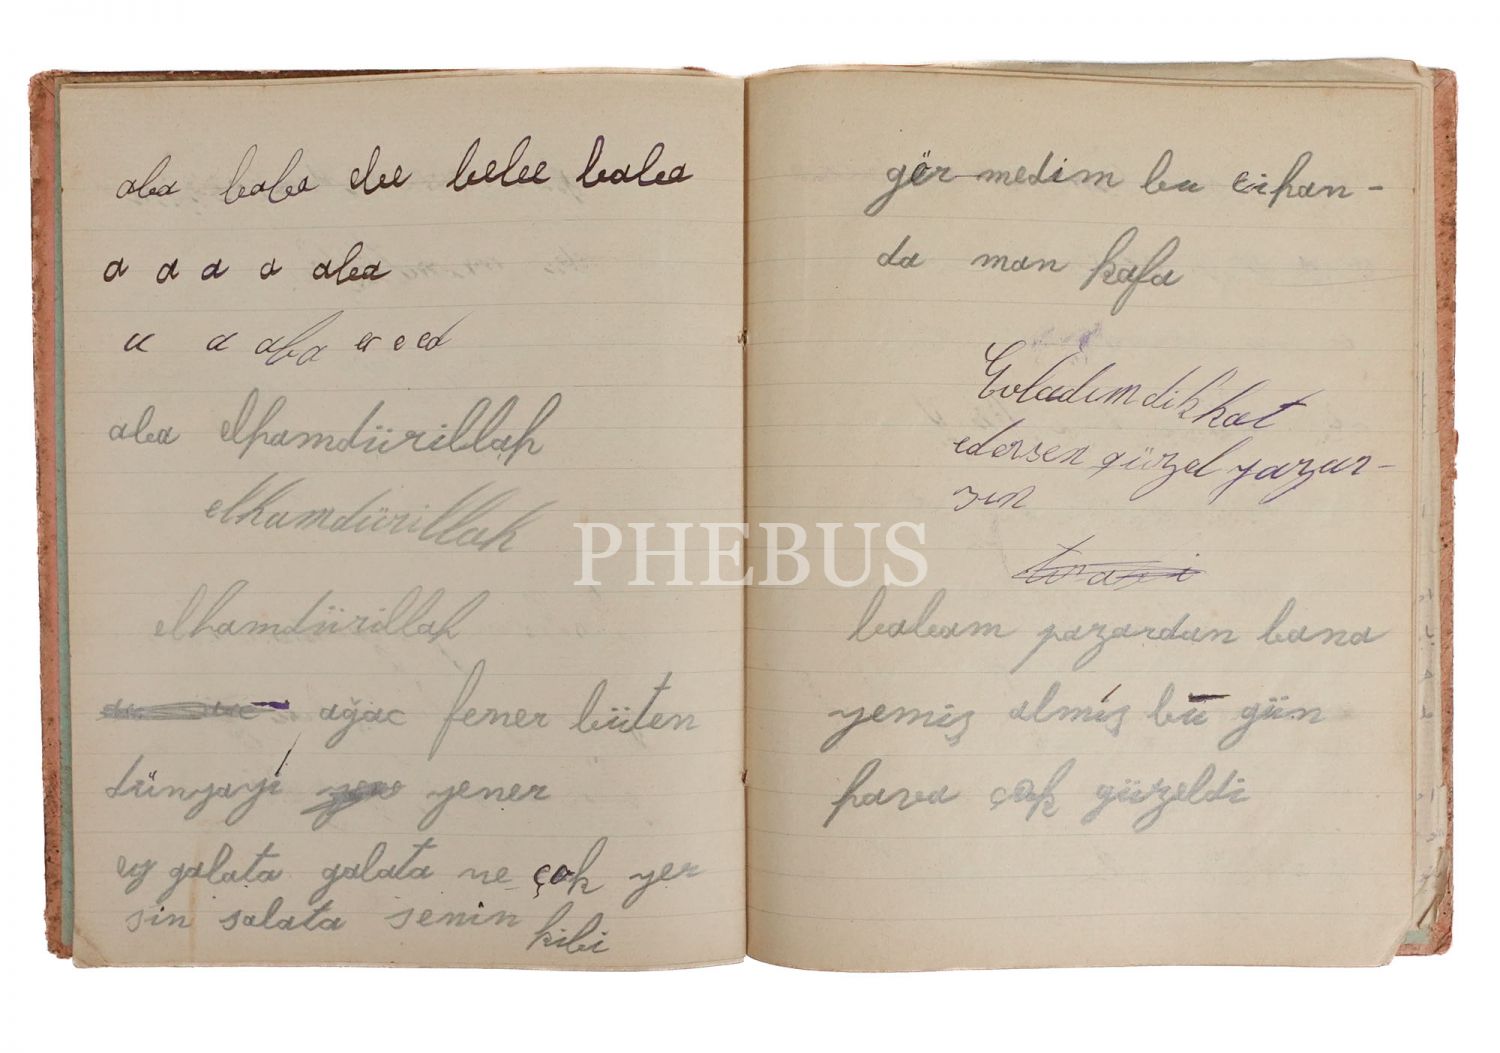 aba baba ebe bebe baba
a a a a aba
a a aba e e ed
aba elhamdürillah
elhamdürillah
elhamdürillah
ağac fener büten
dünyayi yener
ey galata galata ne çok yer
sin salata senin
kibi
gör medim bu cihan-
da man kafa
Evladım dikkat
edersen güzel yazar-
sın
babam pazardan bana
yemiş almış bu gün
hava çok güzeldi
PHEBUS